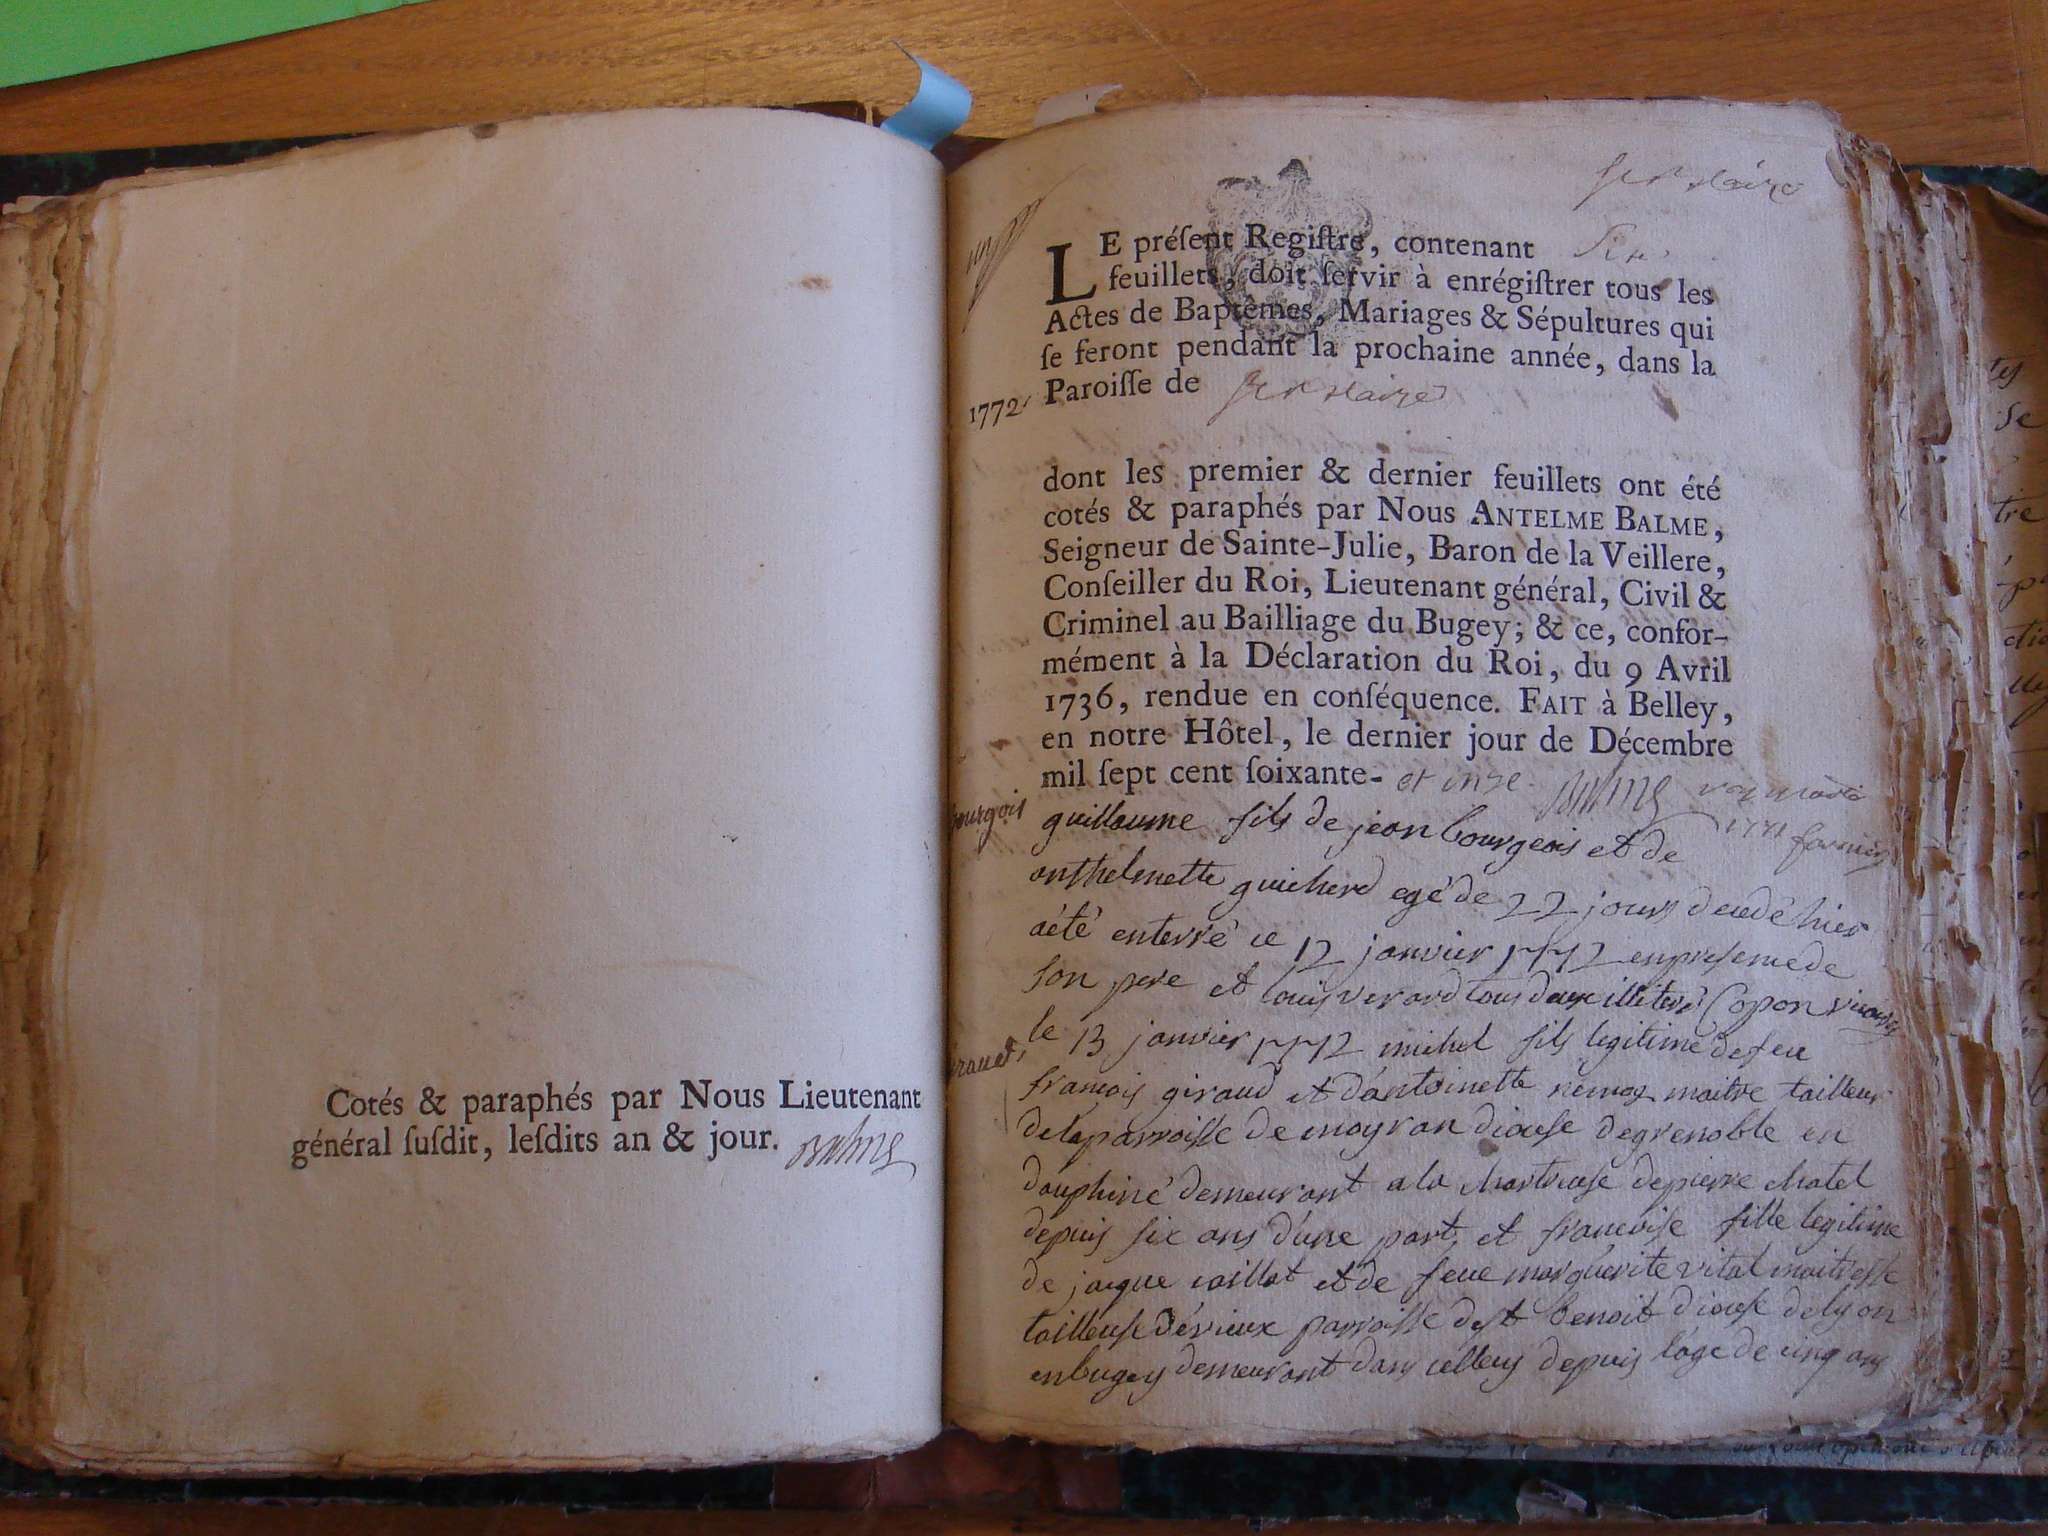 Cotés & paraphés par Nous Lieutenant
général ſuſdit, leſdits an & jour. Balme
LE préſent Regiſtre, contenant
feuillets, doit ſervir à enrégiſtrer tous les
Actes de Baptêmes, Mariages & Sépultures qui
ſe feront pendant la prochaine année, dans la
Paroiſſe de
1772
dont les premier & dernier feuillets ont été
cotés & paraphés par Nous ANTELME BALME,
Seigneur de Sainte-Julie, Baron de la Veillere,
Conſeiller du Roi, Lieutenant général, Civil &
Criminel au Bailliage du Bugey; & ce, confor-
mément à la Déclaration du Roi, du 9 Avril
1736, rendue en conſéquence. FAIT à Belley,
en notre Hôtel, le dernier jour de Décembre
mil ſept cent ſoixante- et onze Balme
bourgois
guillaume fils de jean bourgeois et de
anthelmette guicherd agé de 22 jours decedé hier
aété enterré ce 12 janvier 1772 enpresencede
son pere et louis verard tous deux illiteré Copon vicaire
le 13 janvier 1772 michel fils legitime defeu
francois giraud et d'antoinette nemoz maitre tailleur
delaparroisse de moyran diocese degrenoble en
dauphiné demeurant ala chartreuse depierre chatel
depuis six ans d'une part, et francoise fille legitime
de jacque caillat et de feue marguerite vital maitresse
tailleuse d'érieux parroisse de st benoit diocese delyon
enbugey demeurant dans cellecy depuis l'age de cinq ans